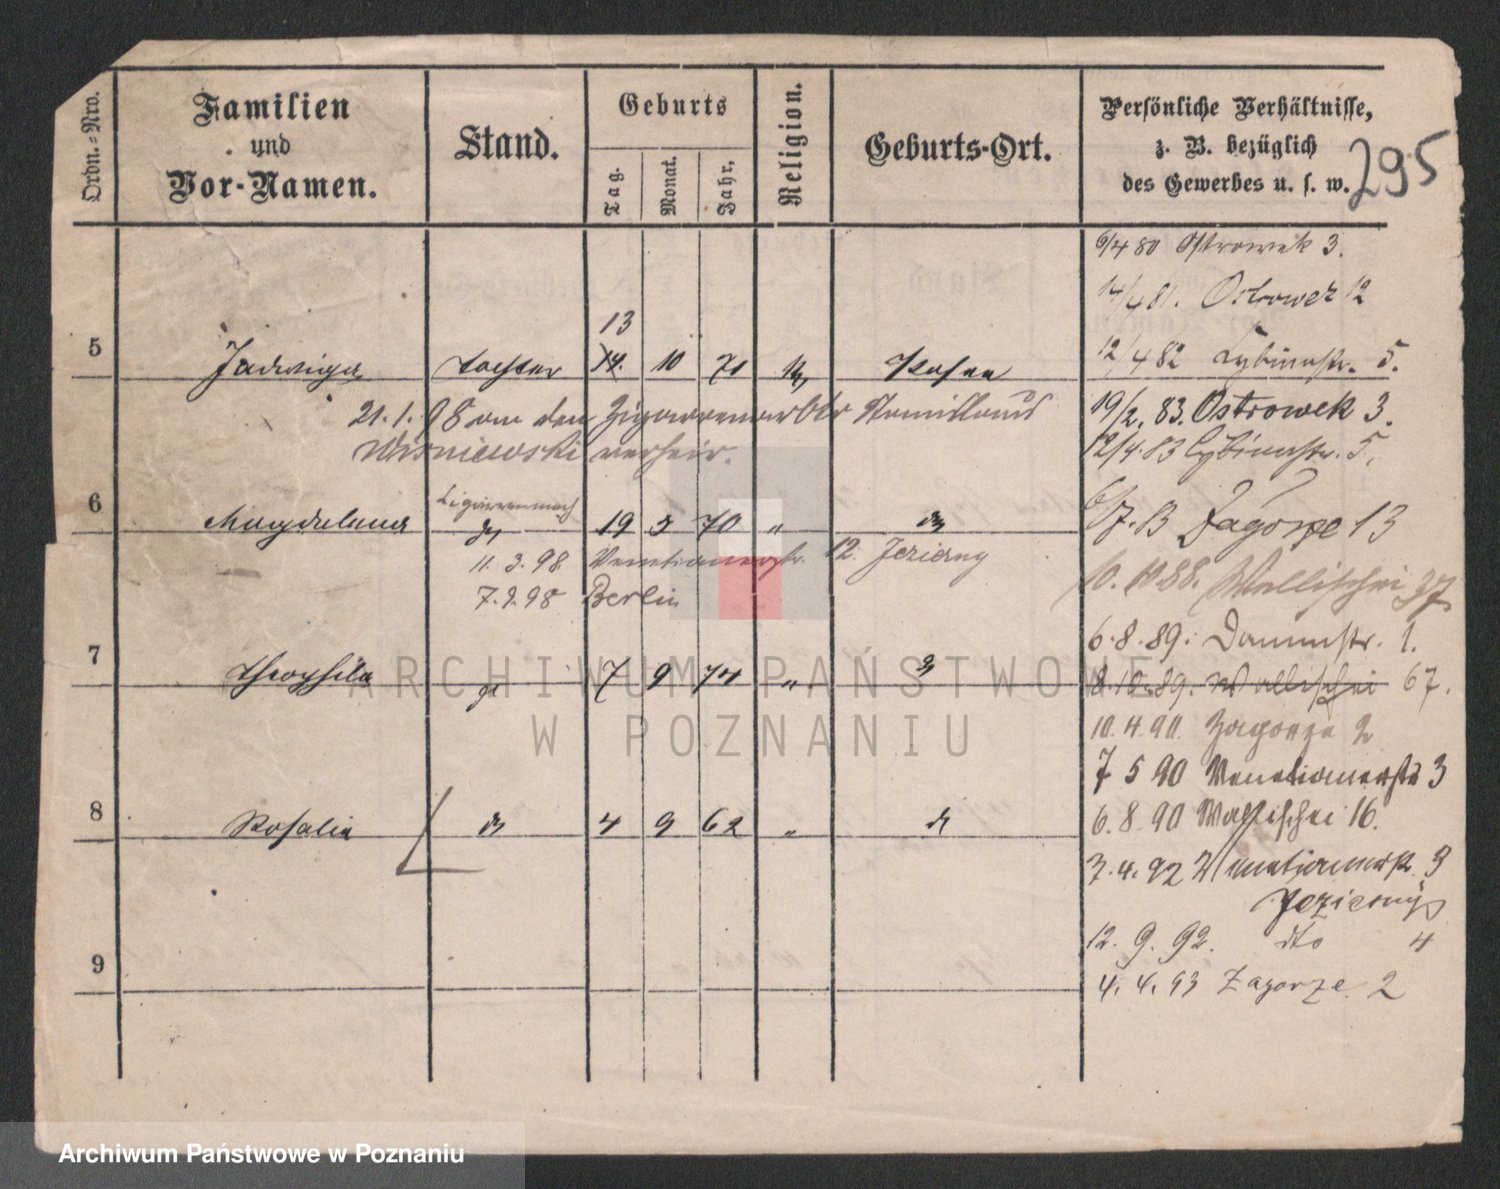 Ordn.=Nro.
Familien
und
Vor-Namen.
Stand.
Geburts
Tag.
Monat.
Jahr.
Religion.
Geburts-Ort.
Persönliche Verhältnisse,
z. B. bezüglich
des Gewerbes u. s. w.
295
6/4 80 Ostrowek 3.
14/4 81. Ostrowek 12
13
5 Jadwiga tochter 14. 10 71 Posen
12/4 82 Cybinastr. 5.
21.1.98 an den Zigarrenarbtr Stanislaus
19/2. 83. Ostrowek 3.
Wisniewski verheir.
12/4.83 Cybinastr. 5.
Cigarrenmach
6 Magdalena do 19 5 70 " do
6/7. 13 Zagorze 13
11.3.98. Venetianerstr. 12. Jezierny
7.9.98 Berlin
10.10.88. Wallischei 37
6.8.89. Dammstr. 1.
7 Theophila do 7 9 74 " do
8.10.89. Wallischei 67.
10.4.90. Zagorze 2
7 5 90 Venetianerstr 3
8 Rosalia do 4 9 62 " do
6.8.90 Wallischei 16.
3.4.92 Venetianerstr. 9
Jezierny
12. 9. 92. dto 4
9
4. 4. 93 Zagorze 2
ARCHIWUM PAŃSTWOWE
W POZNANIU
Archiwum Państwowe w Poznaniu